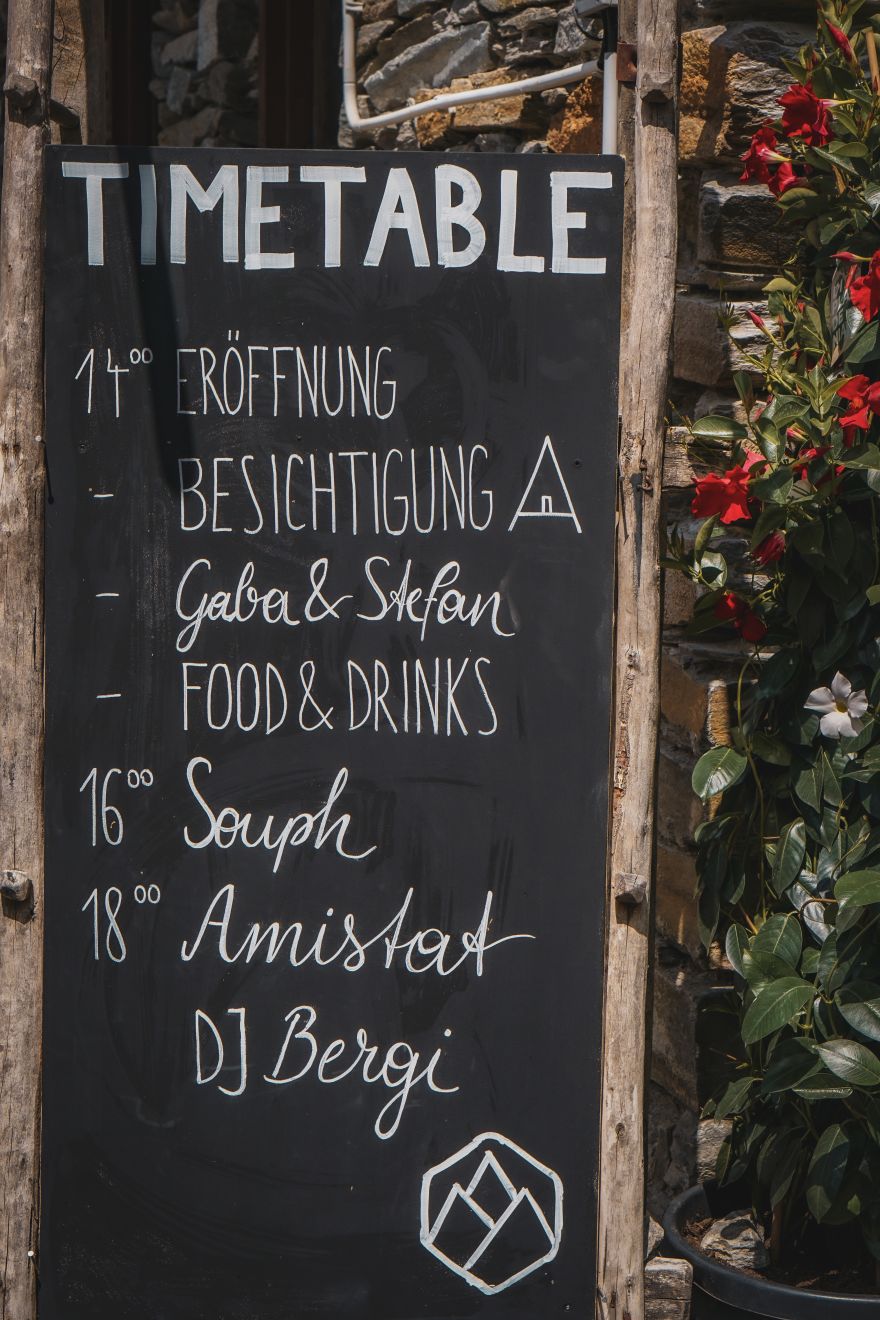 TIMETABLE
14⁰⁰ ERÖFFNUNG
- BESICHTIGUNG
- Gaba & Stefan
- FOOD & DRINKS
16⁰⁰ Souph
18⁰⁰ Amistat
DJ Bergi